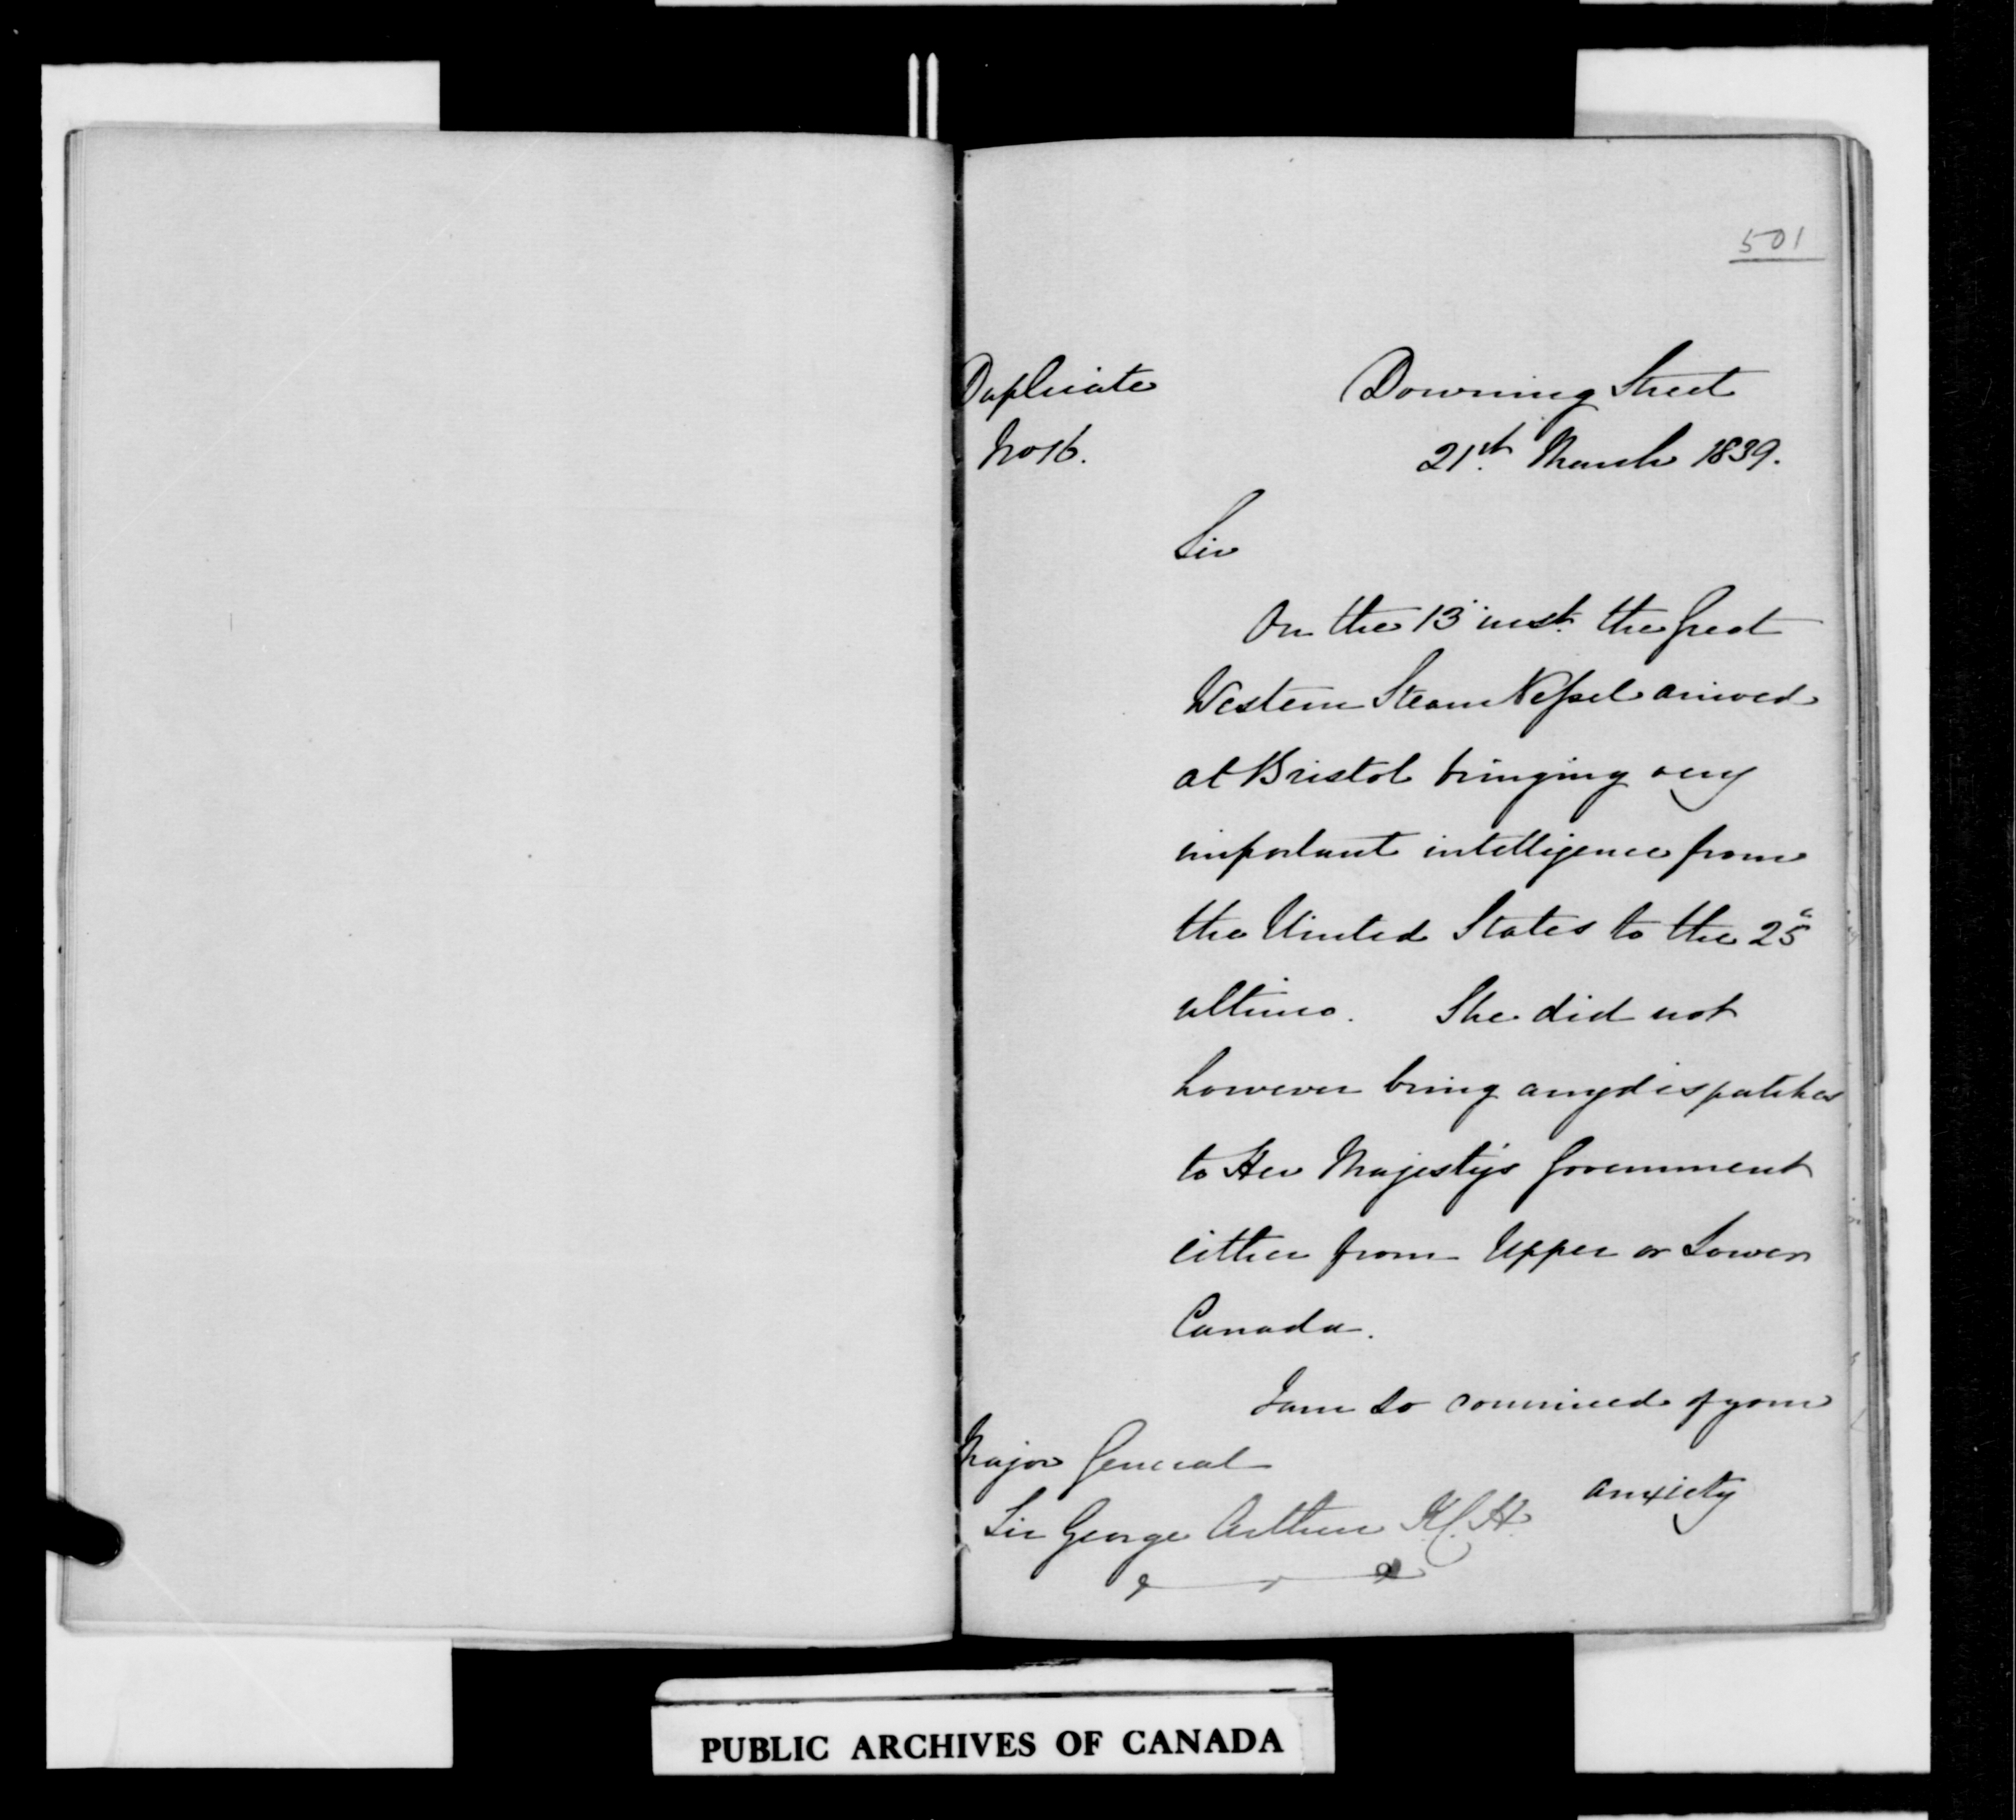 501
Duplicate
No 16.
Downing Street
21st March 1839.
Sir
On the 13" inst. the Great
Western Steam Vessel arrived
at Bristol bringing very
important intelligence from
the United States to the 25"
ultimo. She did not
however bring any dispatches
to Her Majesty's Government
either from Upper or Lower
Canada.
I am so convinced of your
anxiety
Major General
Sir George Arthur K.C.H.
PUBLIC ARCHIVES OF CANADA